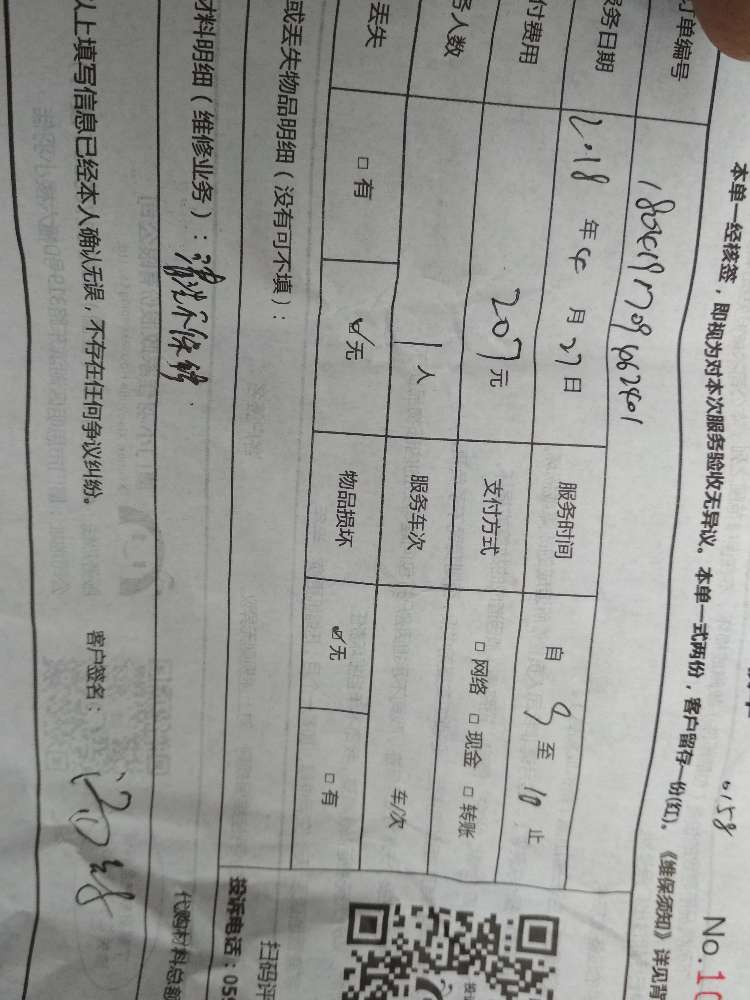 No.10
0158
本单一经核签，即视为对本次服务验收无异议。本单一式两份，客户留存一份(红)。《维保须知》详见背
订单编号
服务日期 2018 年 4 月 27 日 服务时间 自 9 至 10 止
付费用 207 元 支付方式 □ 网络 □ 现金 □ 转账
务人数 1 人 服务车次 车/次
丢失 □ 有 ☑ 无 物品损坏 ☑ 无 □ 有
或丢失物品明细（没有可不填）：
扫码评
投诉电话：059
材料明细（维修业务）：
代购材料总额
以上填写信息已经本人确认无误，不存在任何争议纠纷。 客户签名：